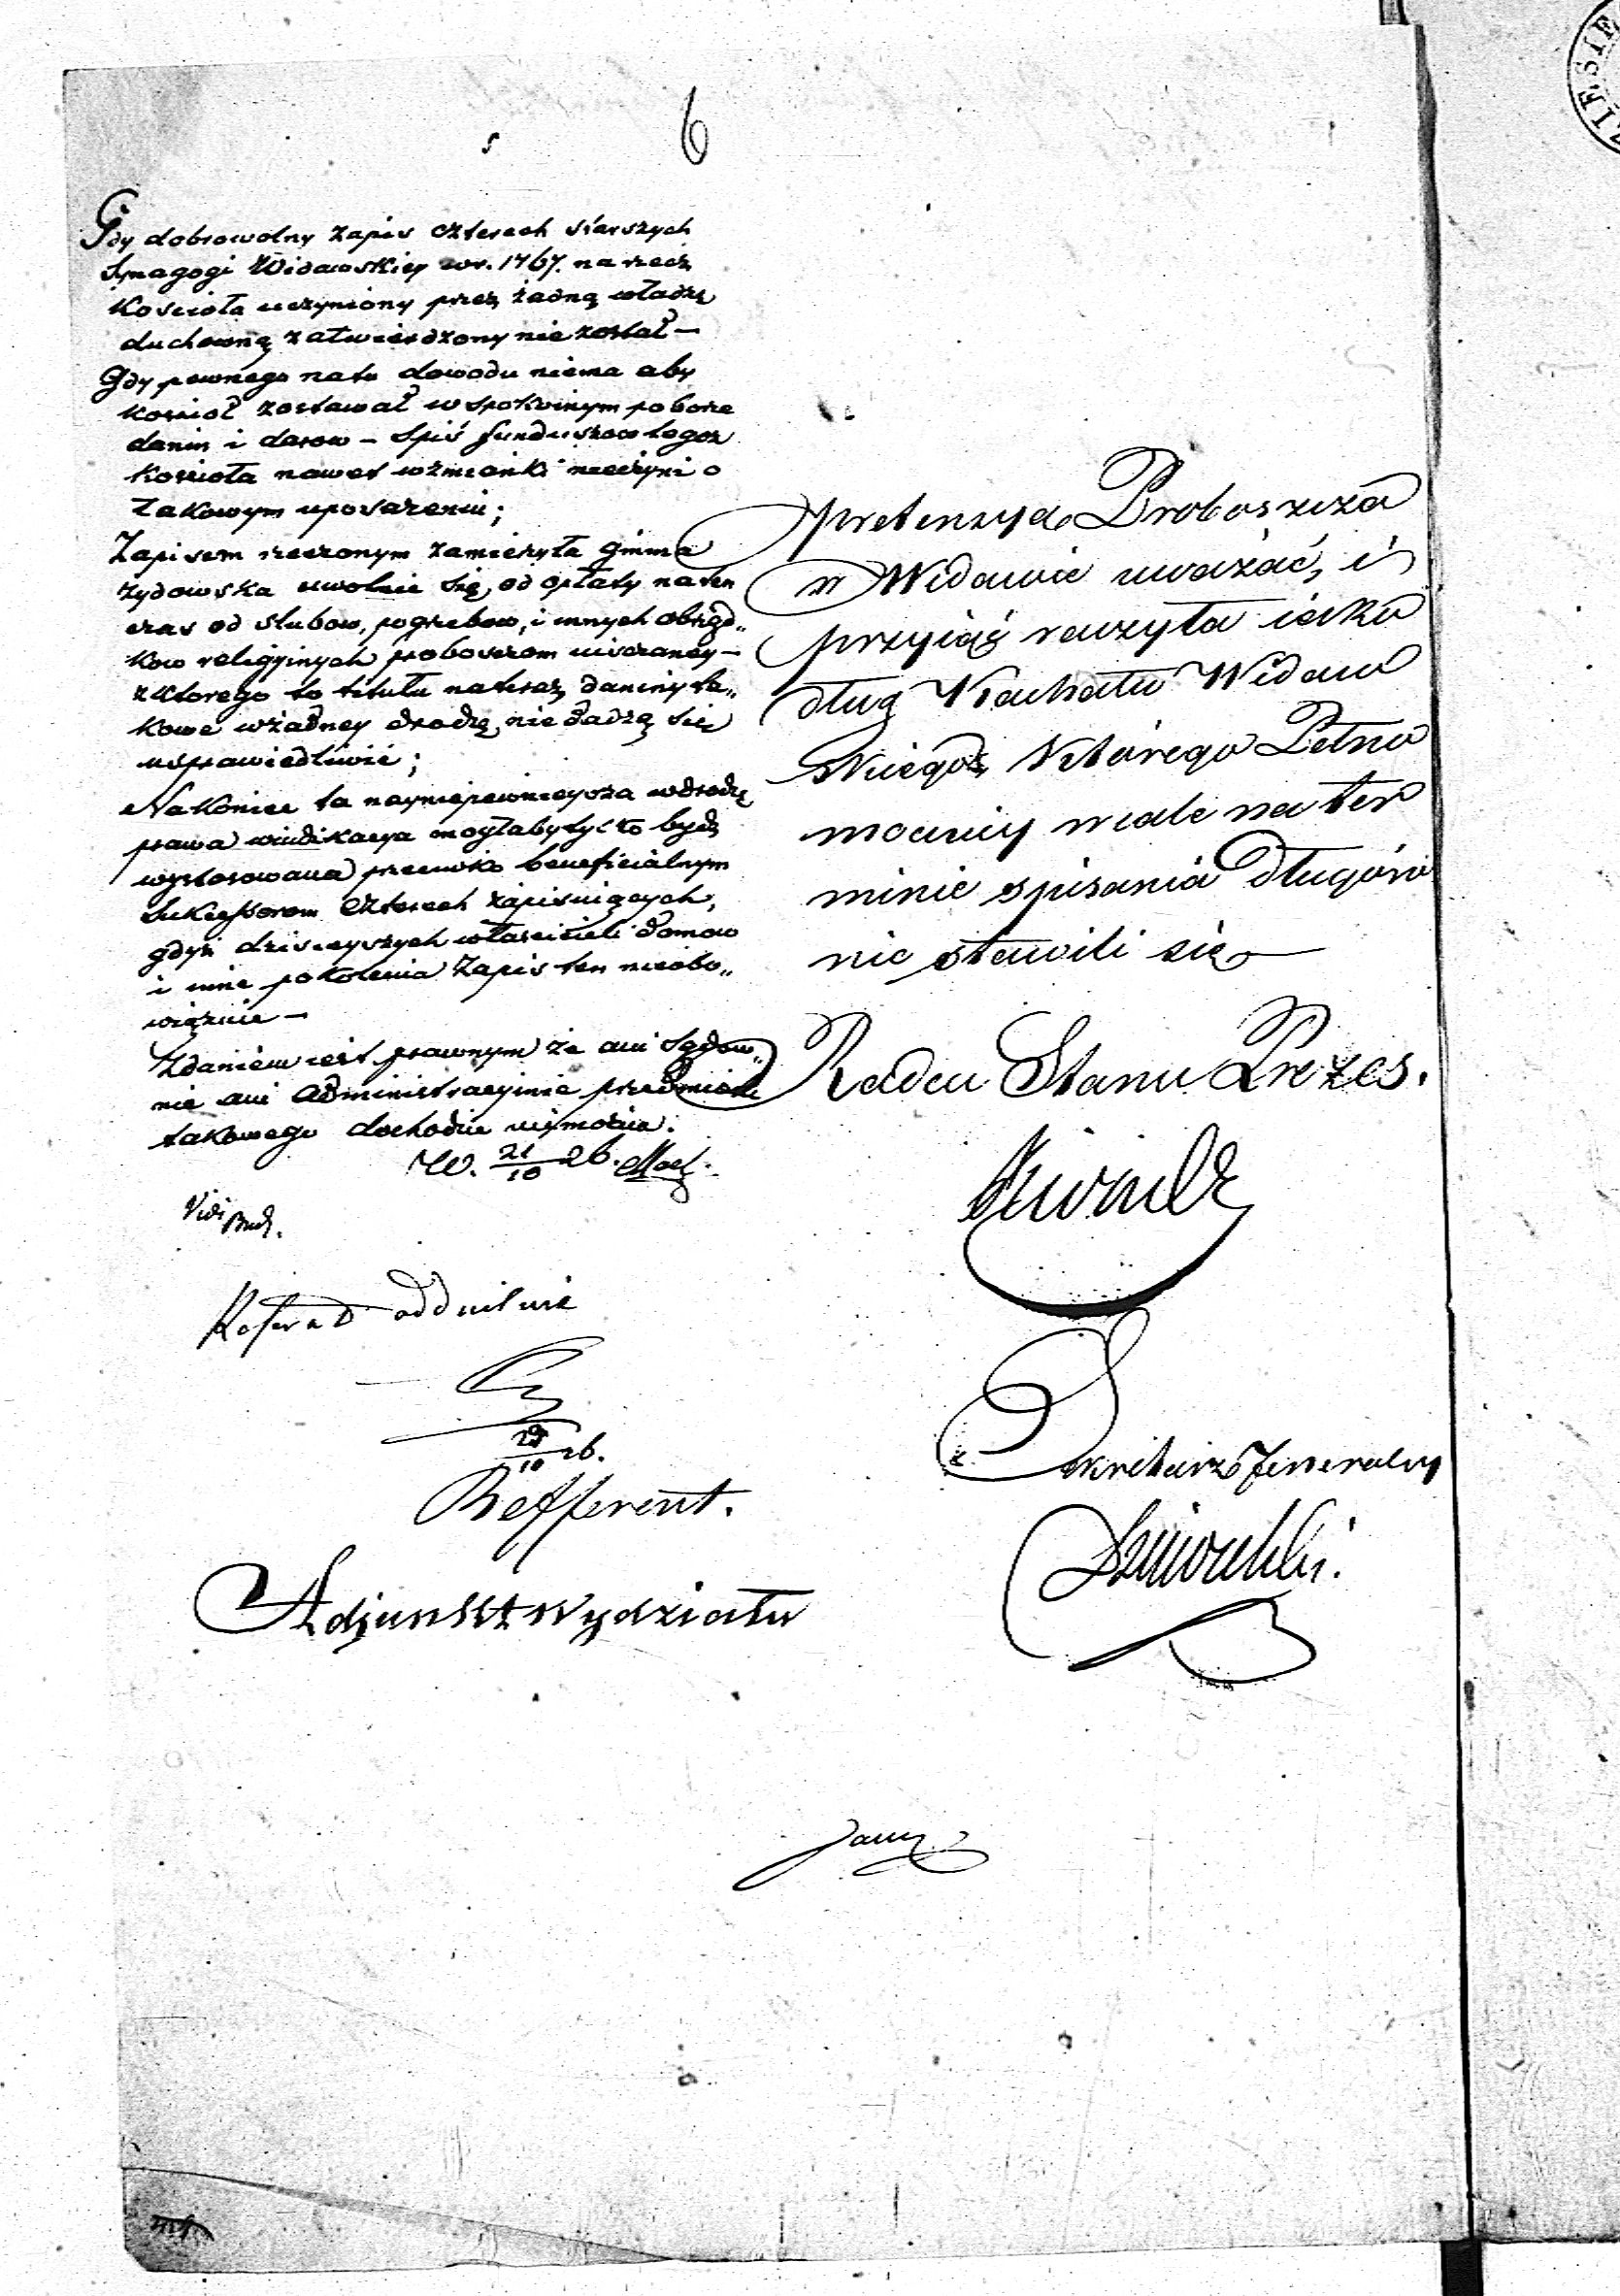 6
Gdy dobrowolny zapis czterech starszych
Synagogi Widawskiey w r. 1767. na rzecz
Kościoła uczyniony przez żadną władzę
duchowną zatwierdzony nie został —
Gdy pewnego na to dowodu niema aby
kościoł zostawał w spokoinym poborze
danin i darow — Spis funduszow tegoż
kościoła nawet wzmianki nieczyni o
takowym uposażeniu;
Zapisem rzeczonym zamierzyła gmina
żydowska uwolnić się od opłaty na ten
czas od slubow, pogrzebow, i innych obrząd„
kow religijnych proboszczom uiszczaney —
z ktorego to tytułu na teraz daniny ta„
kowe w żadney drodze nie dadzą się
usprawiedliwić;
Nakoniec ta naymniepewnieysza w drodze
prawa windikacya mogłaby tylko bydź
wystosowana przeciwko beneficialnym
Sukcessorom czterech zapisuiących,
gdyż dzisieyszych właścicieli domow
i inne pokolenia Zapis ten nieobo„
wiązuie —
Zdaniem iest prawnym że ani Sądow„
nie ani administracyinie przedmiotu
takowego dochodzić niemożna.
W. 21/10 26.
Vidi
Referat oddzielnie
29/10 26.
Refferent.
Adjunkt Wydziału
pretensyą Proboszcza
w Widawie uważać, i
przyiąć raczyła iako
dług Kachału Widaw
skiego, którego Pełno
mocnicy wcale na ter
minie spisania Długów
nie stawili się —
Radca Stanu Prezes.
Sekretarz Jeneralny